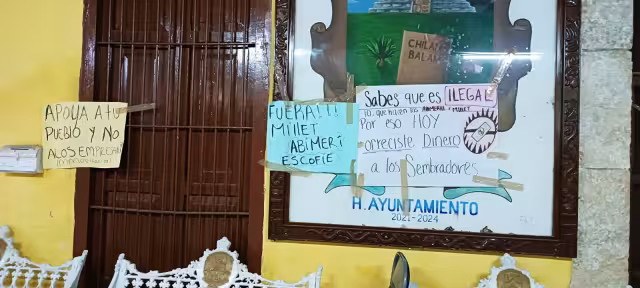 APOYA A tU
PUEBLO Y NO
A LOS EMPRESA
FUERA!!!
MILLET
ABIMERÍ
ESCOFIE
CHILAM
BALAM
Sabes que es ILEGAL
Por eso HOY
ofreciste Dinero
a los Sembradores
H. AYUNTAMIENTO
2021-2024